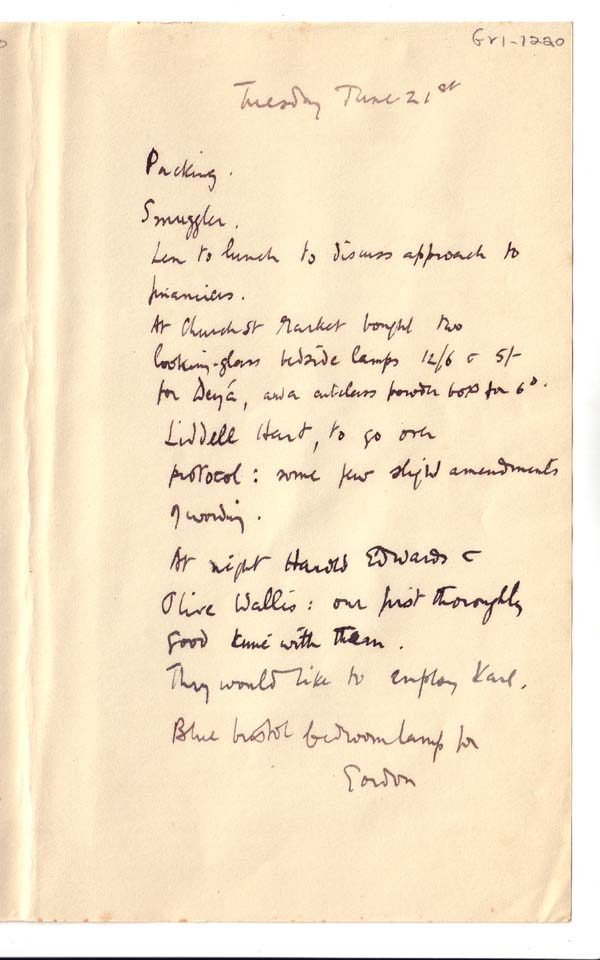 Gr1-1220
Tuesday June 21st
Packing.
Smuggler.
Len to lunch to discuss approach to
financiers.
At Church St Market bought two
looking-glass bedside lamps 12/6 & 5/-
for Deyá, and a cutglass powder box for 6d.
Liddell Hart, to go over
protocol: some few slight amendments
of wording.
At night Harold Edwards &
Olive Wallis: our first thoroughly
good time with them.
They would like to employ Karl.
Blue bristol bedroom lamp for
Gordon